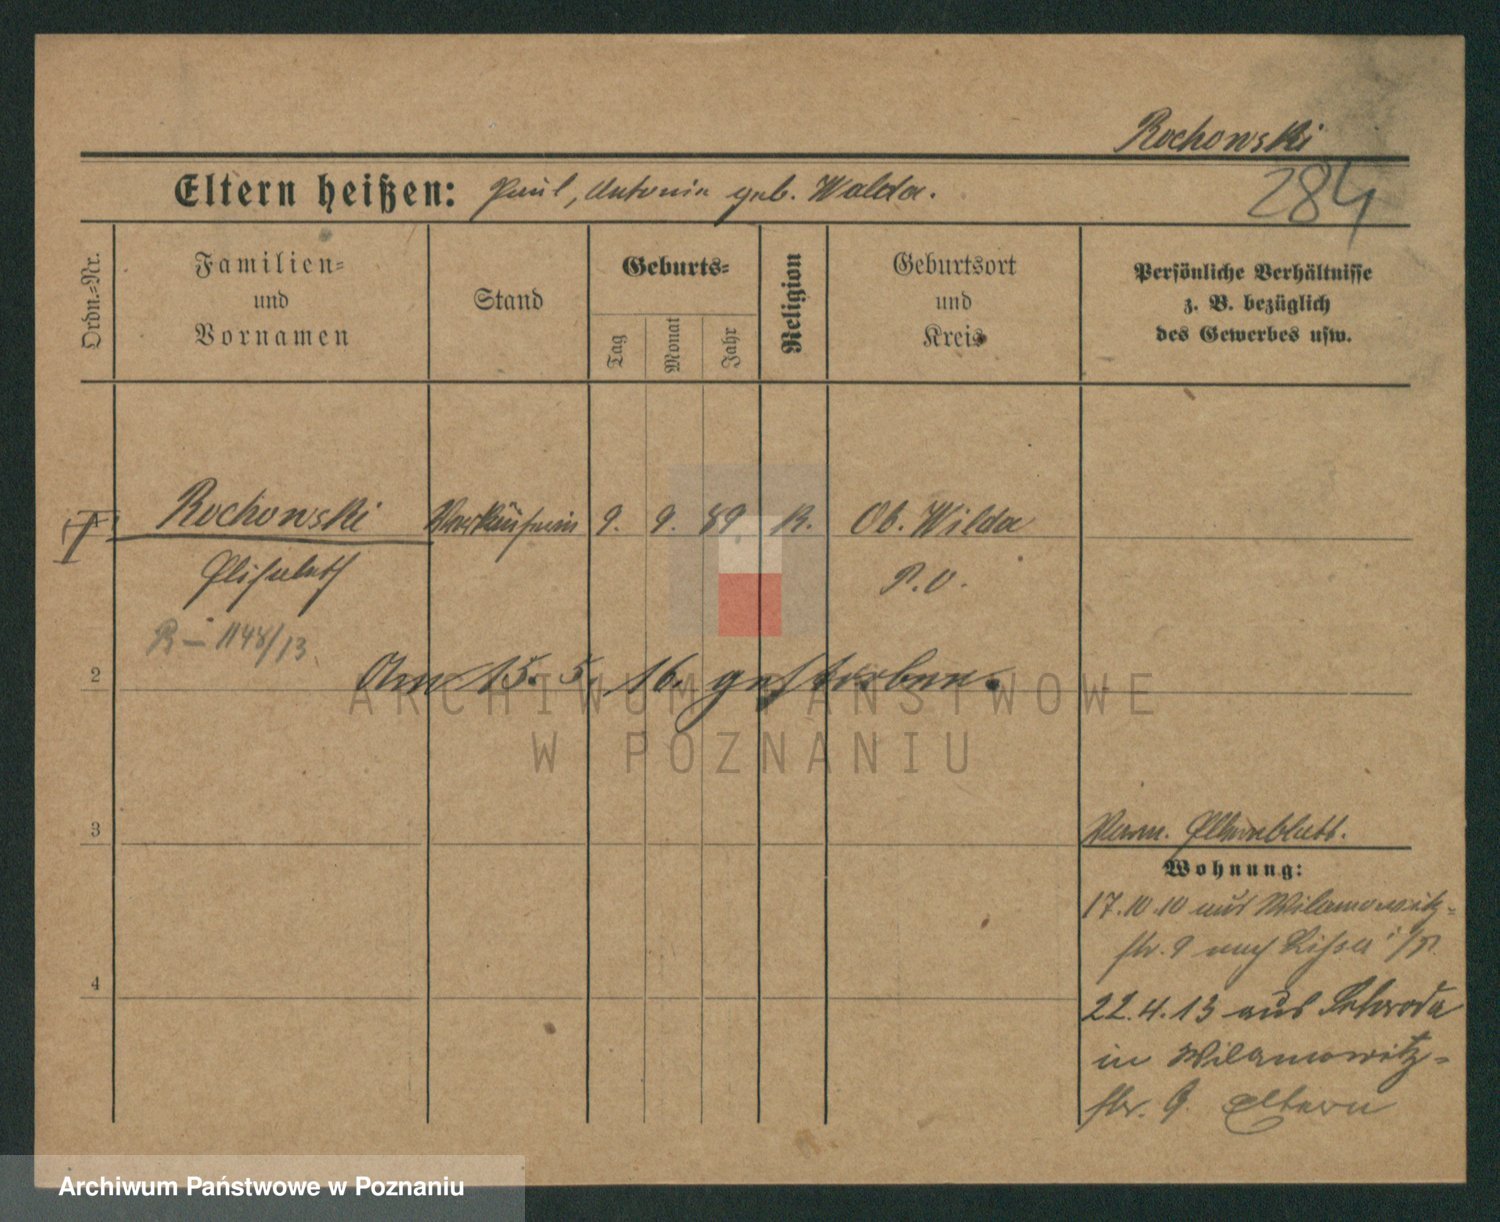 Rochowski
284
Eltern heißen: Paul, Antonie geb. Walda.
Ordn.-Nr.
Familien-
und
Vornamen
Stand
Geburts-
Tag
Monat
Jahr
Religion
Geburtsort
und
Kreis
Persönliche Verhältnisse
z. B. bezüglich
des Gewerbes usw.
1
Rochowski Verkäuferin 9. 9. 89 K. Ob. Wilda
Elisabeth P. O.
R – 1148/13
2 Am 15. 5. 16. gestorben.
ARCHIWUM PAŃSTWOWE
W POZNANIU
3
Elternblatt.
Wohnung:
17.10.10 aus Wilamowitz-
str. 9 nach Lissa i/P.
4
22.4.13 aus Schroda
in Wilamowitz-
str. 9. Eltern
Archiwum Państwowe w Poznaniu